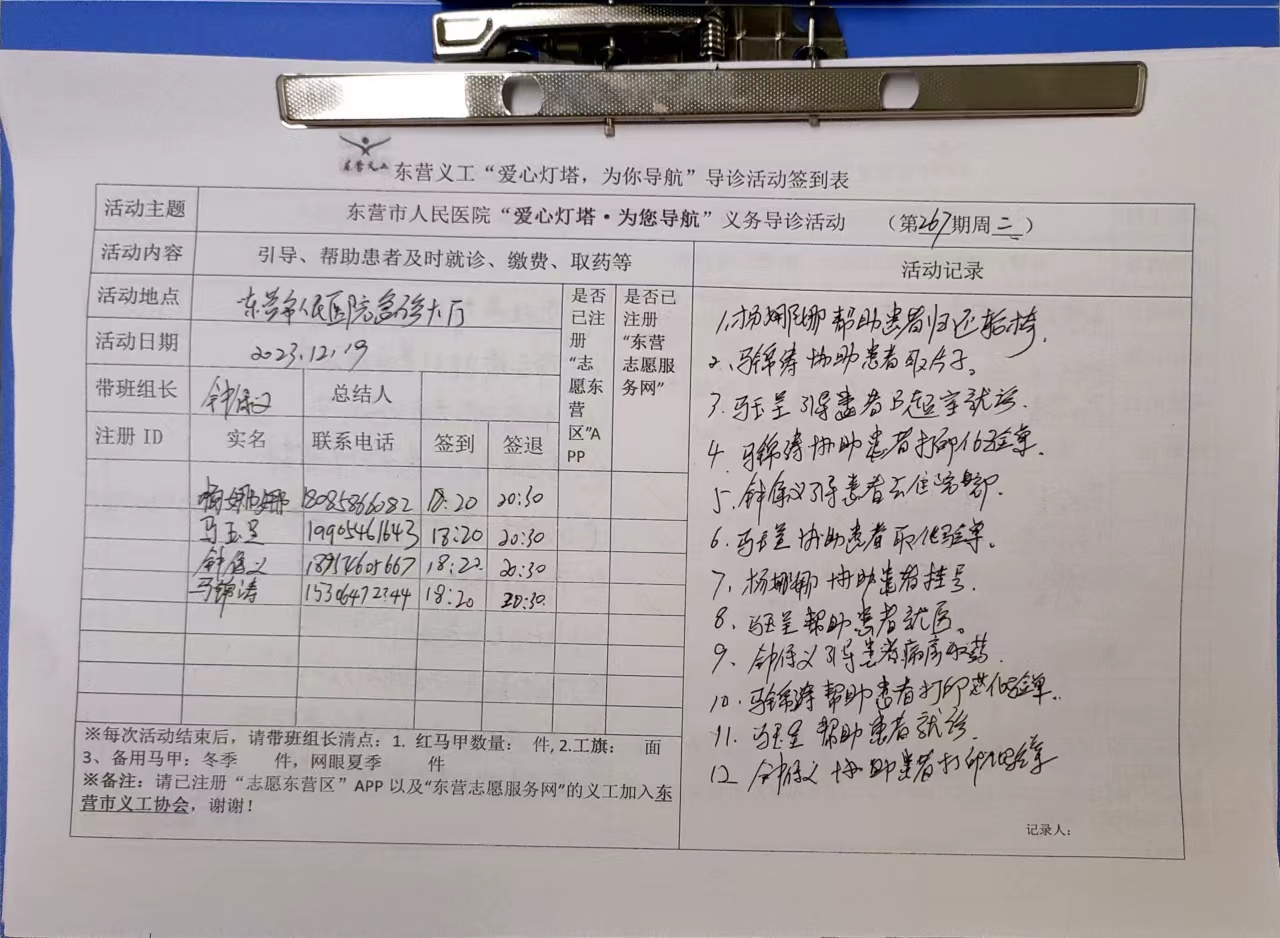 东营义工
东营义工“爱心灯塔，为你导航”导诊活动签到表
活动主题
东营市人民医院“爱心灯塔·为您导航”义务导诊活动 （第267期周二）
活动内容
引导、帮助患者及时就诊、缴费、取药等
活动地点
东营市人民医院急诊大厅
活动日期
2023.12.19
带班组长 钟保义 总结人
注册 ID 实名 联系电话 签到 签退
是否已注册“志愿东营区”APP
是否已注册“东营志愿服务网”
杨娜娜 18085866082 18:20 20:30
马玉呈 19905461643 18:20 20:30
钟保义 18:22 20:30
马锦涛 15306472744 18:20 20:30
※每次活动结束后，请带班组长清点：1. 红马甲数量： 件, 2.工旗： 面
3、备用马甲：冬季 件，网眼夏季 件
※备注：请已注册“志愿东营区”APP 以及“东营志愿服务网”的义工加入东
营市义工协会，谢谢！
活动记录
1、杨娜娜帮助患者归还轮椅。
2、马锦涛协助患者取片子。
3、马玉呈引导患者B超室就诊.
4、马锦涛协助患者打印化验单。
5、钟保义引导患者去住院部.
6、马玉呈协助患者取化验单。
7、杨娜娜协助患者挂号.
8、马玉呈帮助患者就医。
9、钟保义引导患者取药.
10、马锦涛帮助患者打印化验单.
11、马玉呈帮助患者就诊.
12、钟保义协助患者打印化验单
记录人：